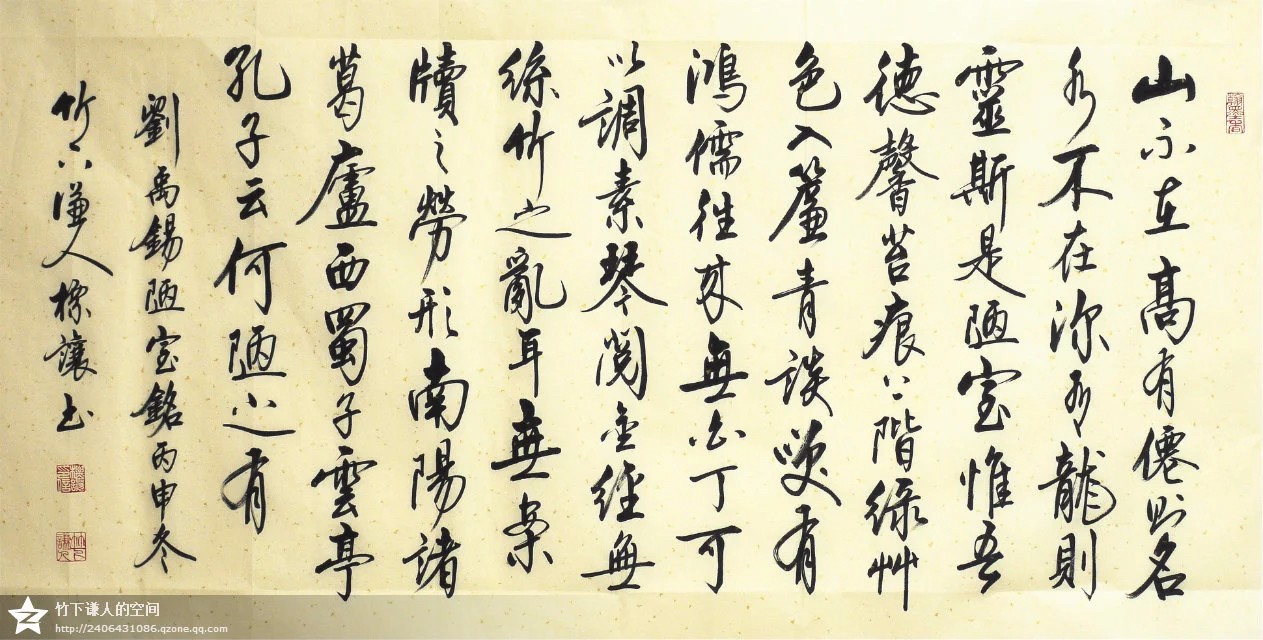 山不在高有僊則名
水不在深有龍則
靈斯是陋室惟吾
德馨苔痕上階綠艸
色入簾青談笑有
鴻儒往來無白丁可
以調素琴閱金經無
絲竹之亂耳無案
牘之勞形南陽諸
葛廬西蜀子雲亭
孔子云何陋之有
劉禹錫陋室銘丙申冬
竹下謙人標讓书
竹下谦人的空间
http://2406431086.qzone.qq.com